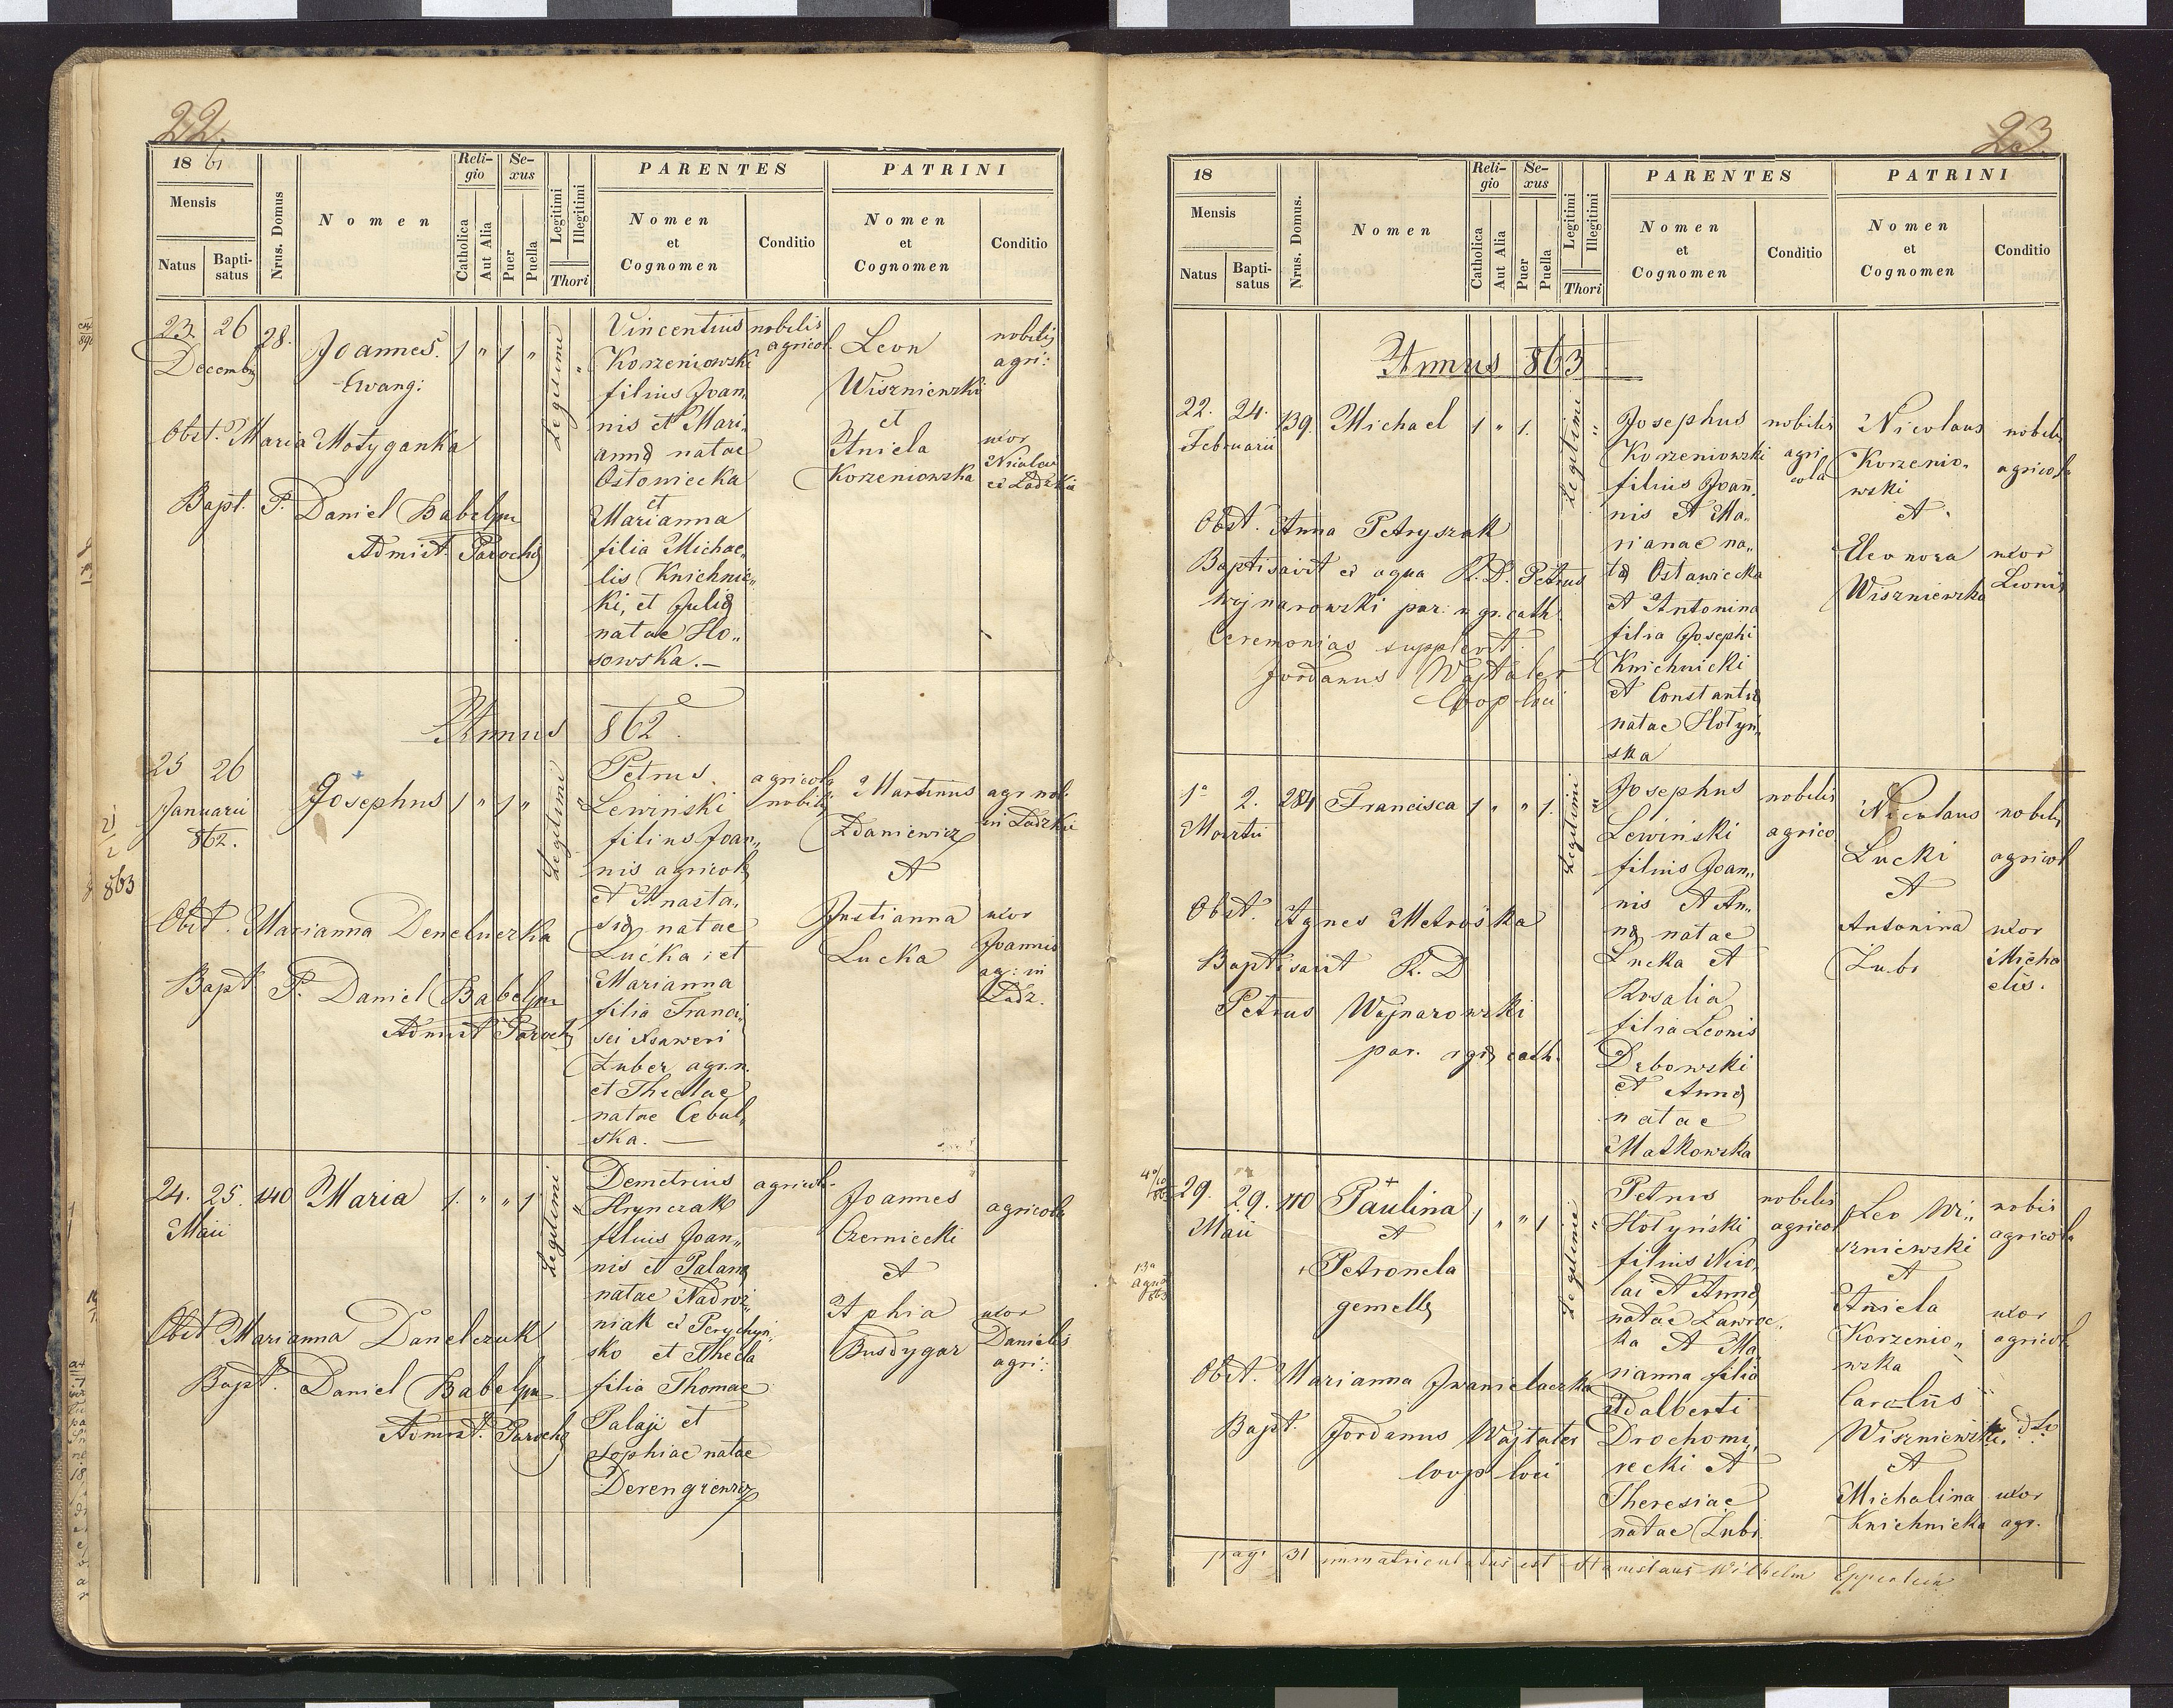 22.
18 61
Mensis
Natus
Bapti-
satus
Nrus. Domus
Nomen
Reli-
gio
Catholica
Aut Alia
Se-
xus
Puer
Puella
Legitimi
Illegitimi
Thori
PARENTES
Nomen
et
Cognomen
Conditio
PATRINI
Nomen
et
Cognomen
Conditio
23. 26 28.
Decembris
Joannes.
Ewang:
1 " 1 "
Legitimi
"
Obst. Maria Motyganka
Bapt. P. Daniel
Admist. Parochs
Vincentius
Korzeniowski
filius Joan,
nis et Mari,
anna natae
Ostowiecka
et
Marianna
filia Michae,
lis Knichnic,
ki, et Julia
natae Ho,,
sowska.—
nobilis
agricol.
Leon
Wiszniewski
et
Aniela
Korzeniowska
nobilis
agri:
uxor
Nicolai
Annus 862
25 26
Januarii
862.
Josephus
1 " 1 "
Legitimi
"
Obst. Marianna
Bapt P. Daniel
Admist Paroch
Petrus
Lewinski
filius Joan,,
nis agricola
et Anasta,
sia natae
Lućka; et
Marianna
filia Franci,
sci Xsaweri
Zuber agr.n.
et Theclae
natae Cebul,
ska. —
agricola
nobilis
Martinus
Zdaniewicz
et
Justianna
Lucka
agr nob:
uxor
Joannis
ag: in
Ladz.
24. 25. 140
Maii
Maria
1. " " 1
Legitimi
"
Obst. Marianna Danelczuk
Bapt. Daniel
Admist. Parochs
Demetrius
Hrynczak
filius Joan,,
nis et Palana
natae
niak
sko et Thecla
filia Thomae
et
Sophiae natae
agricol.
Joannes
Czerniecki
et
agricola
uxor
Danielis
agri:
863
23.
18
Mensis
Natus
Bapti-
satus
Nrus. Domus.
Nomen
Reli-
gio
Catholica
Aut Alia
Se-
xus
Puer
Puella
Legitimi
Illegitimi
Thori
PARENTES
Nomen
et
Cognomen
Conditio
PATRINI
Nomen
et
Cognomen
Conditio
Annus 863
22. 24. 139.
Februarii
Michael
1 " 1.
Legitimi
"
Obst. Anna Petryszak
Baptisavit ex aqua R. D. Petrus
Wojnarowski par: r. gr. cath.
Ceremonias supplevit
Jordanus
Coop loci
Josephus
Korzeniowski
filius Joan,
nis et Ma,
rianae na,
ta Ostawiecka
et Antonina
filia Josephi
Knichnicki
et Constantia
natae Hotyń,
ska
nobilis
agri
cola
Nicolaus
Korzenio,
wski
et
Eleonora
Wiszniewska
nobilis
agricola
uxor
Leonis
1a 2. 284
Martii
Francisca
1 " " 1.
Legitimi
"
Obst. Agnes
Baptisavit R. D
Petrus Wojnarowski
par. r gr cath.
Josephus
Lewinski
filius Joan,,
nis et An,,
na natae
Lucka et
Rosalia
filia Leonis
Dębowski
et Anna
natae
Matkowska
nobilis
agrico
Nicolaus
Lucki
et
Antonina
Zubr
nobilis
agricol
uxor
Micha
elis.
29. 29. 110
Maii
Paulina
et
Petronela
gemellae
1 " " 1
Legitimi
"
Obst. Marianna
Bapt. Jordanus
coop loci
Petrus
Hotyński
filius Nico,
lai et Anna
natae
ka et Ma
rianna filia
Adalberti
Drochomi,
recki et
Theresiae
natae Zubr
nobilis
agricol
Leo Wi,,
szniewski
et
Aniela
Korzenio,,
wska
Carolus
Wiszniewski
et
Michalina
Knichnicka
nobis
agricola
uxor
agricol.
dto
uxor
agr.
pag: 31 immatriculatus est Stanislaus Wilhelm Epperlein